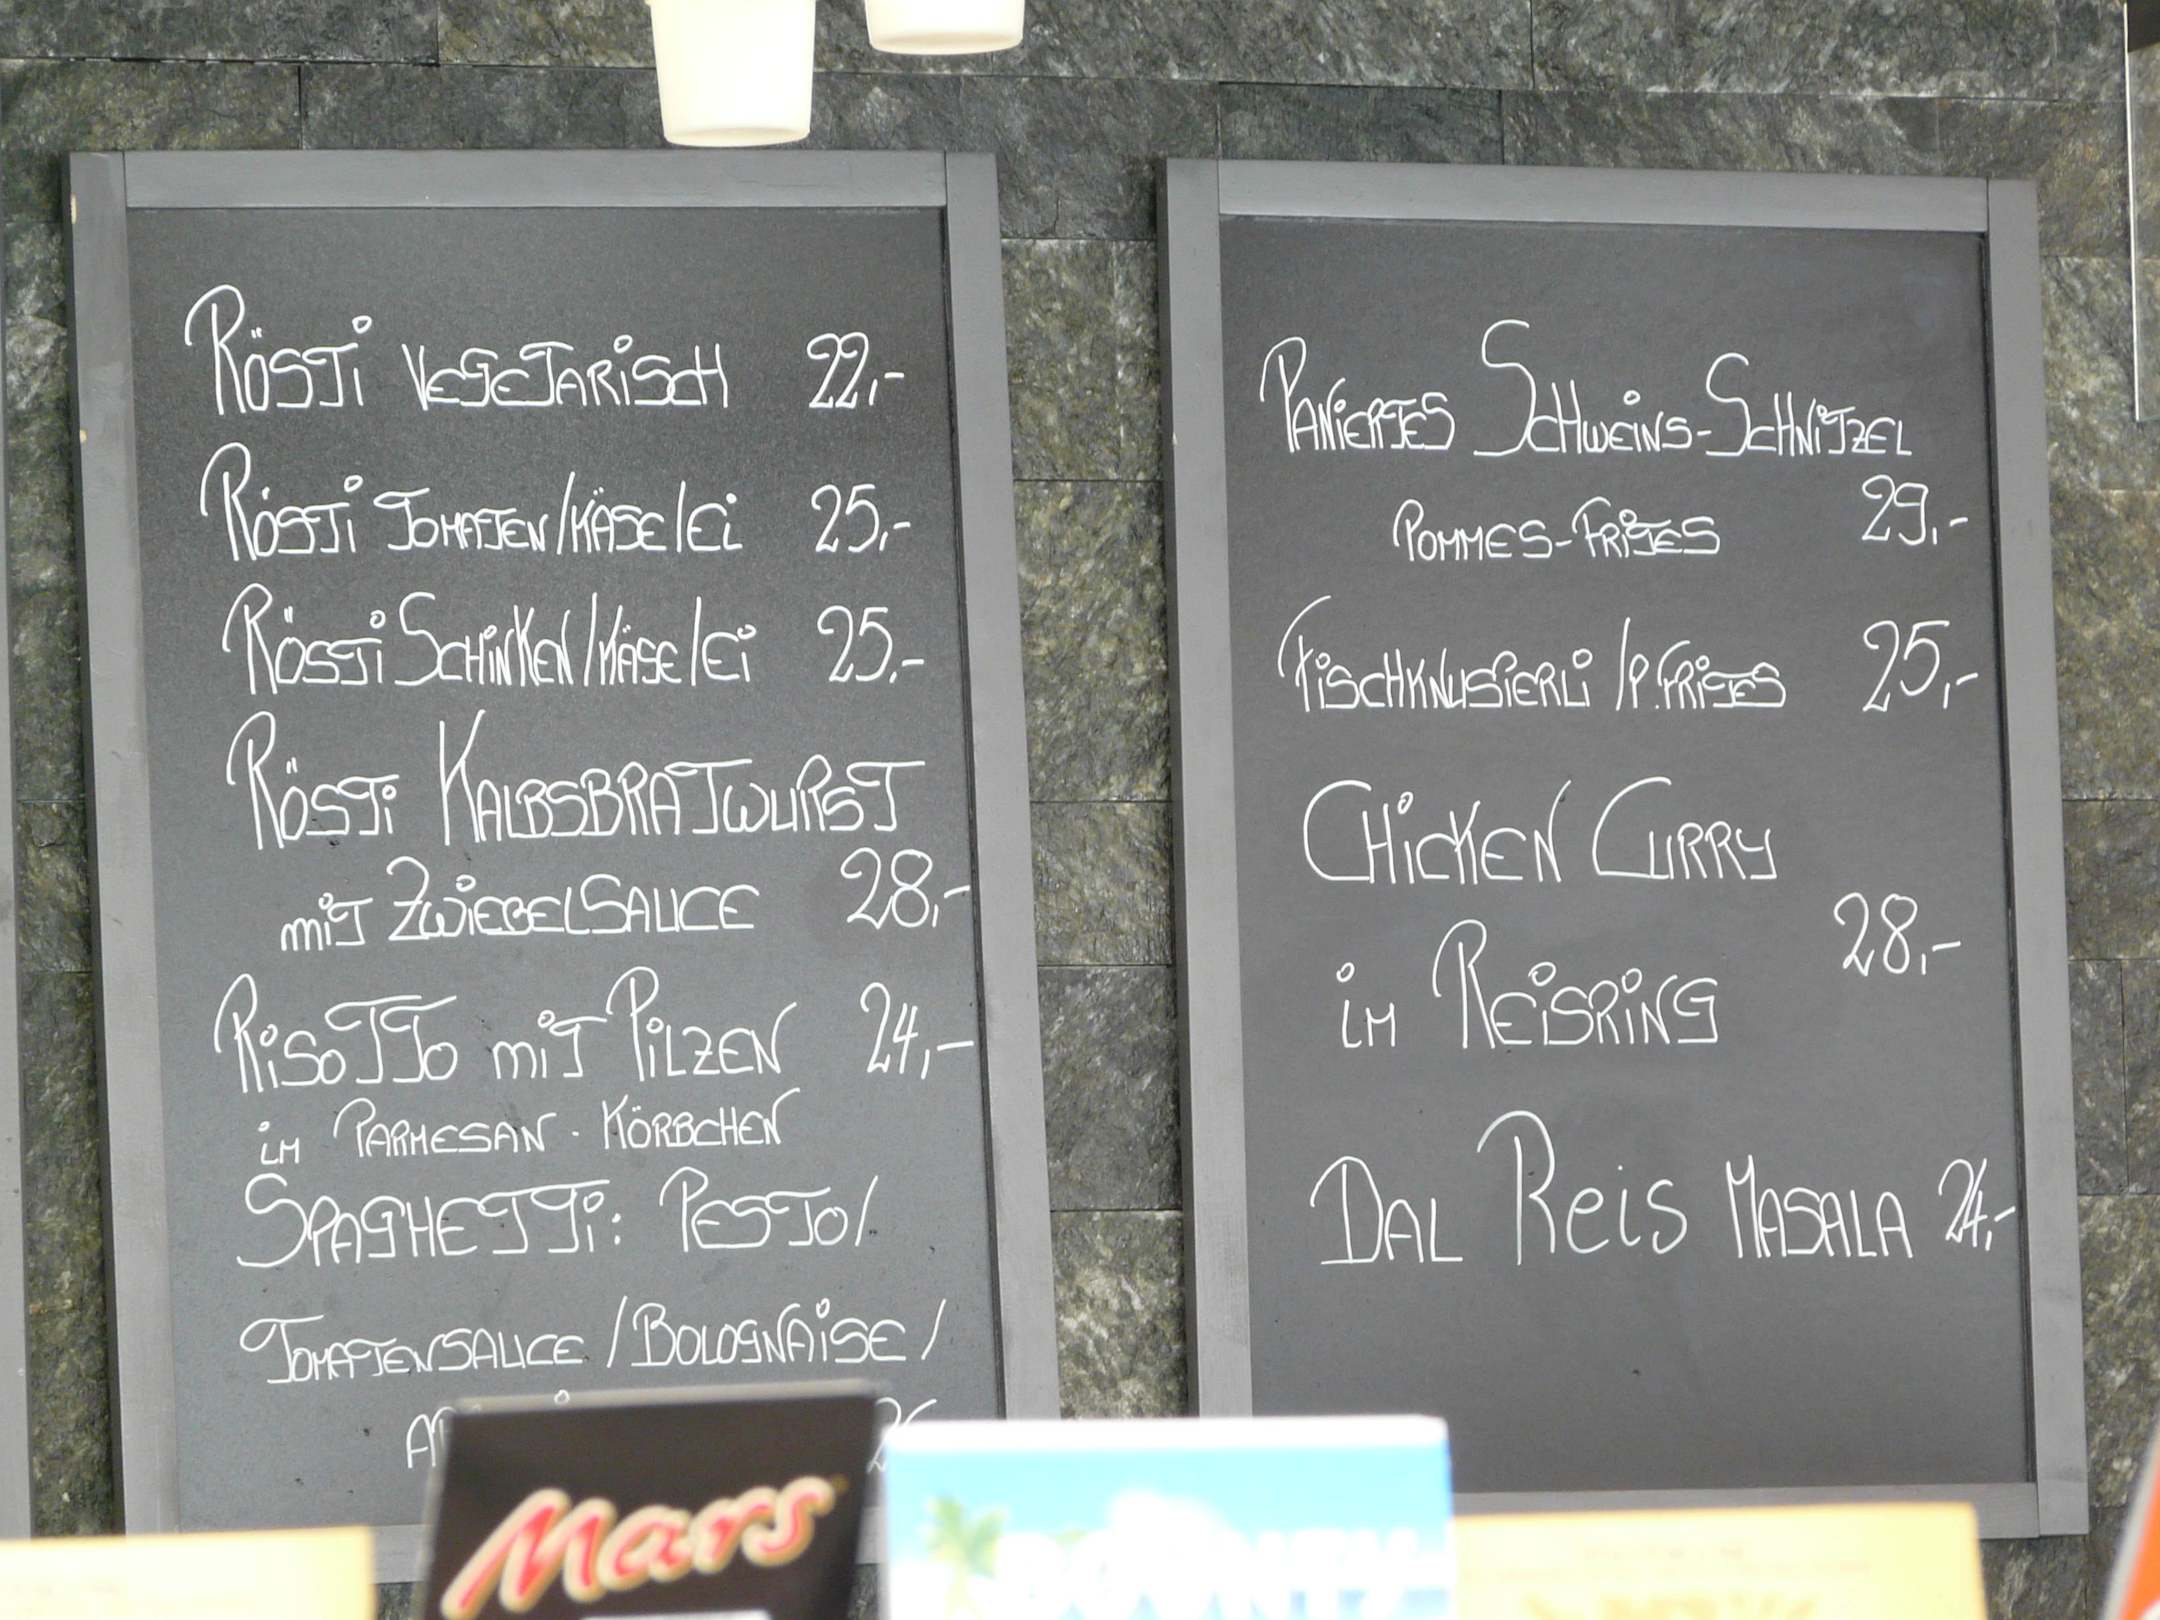 Rösti vegetarisch 22,-
Rösti Tomaten/Käse/Ei 25,-
Rösti Schinken/Käse/Ei 25.-
Rösti Kalbsbratwurst
mit Zwiebelsauce 28,-
Risotto mit Pilzen 24,-
im Parmesan-Körbchen
Spaghetti: Pesto/
Tomatensauce/Bolognaise/
Paniertes Schweins-Schnitzel
Pommes-Frites 29,-
Fischknusperli/P.Frites 25,-
Chicken Curry
28,-
im Reisring
Dal Reis Masala 24,-
Mars
BOUNTY